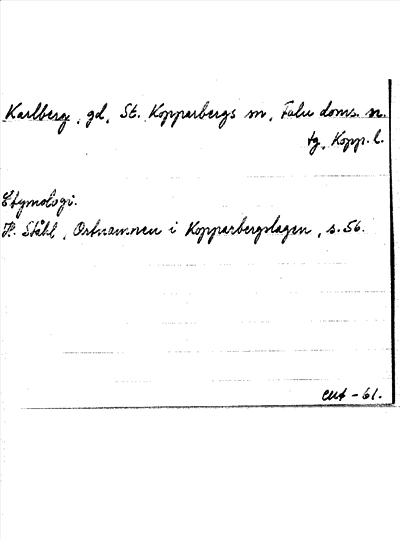 Karlberg, gd, St. Kopparbergs sn, Falu doms. n.
tg, Kopp. l.
Etymologi.
H. Ståhl, Ortnamnen i Kopparbergslagen, s. 56.
-61.